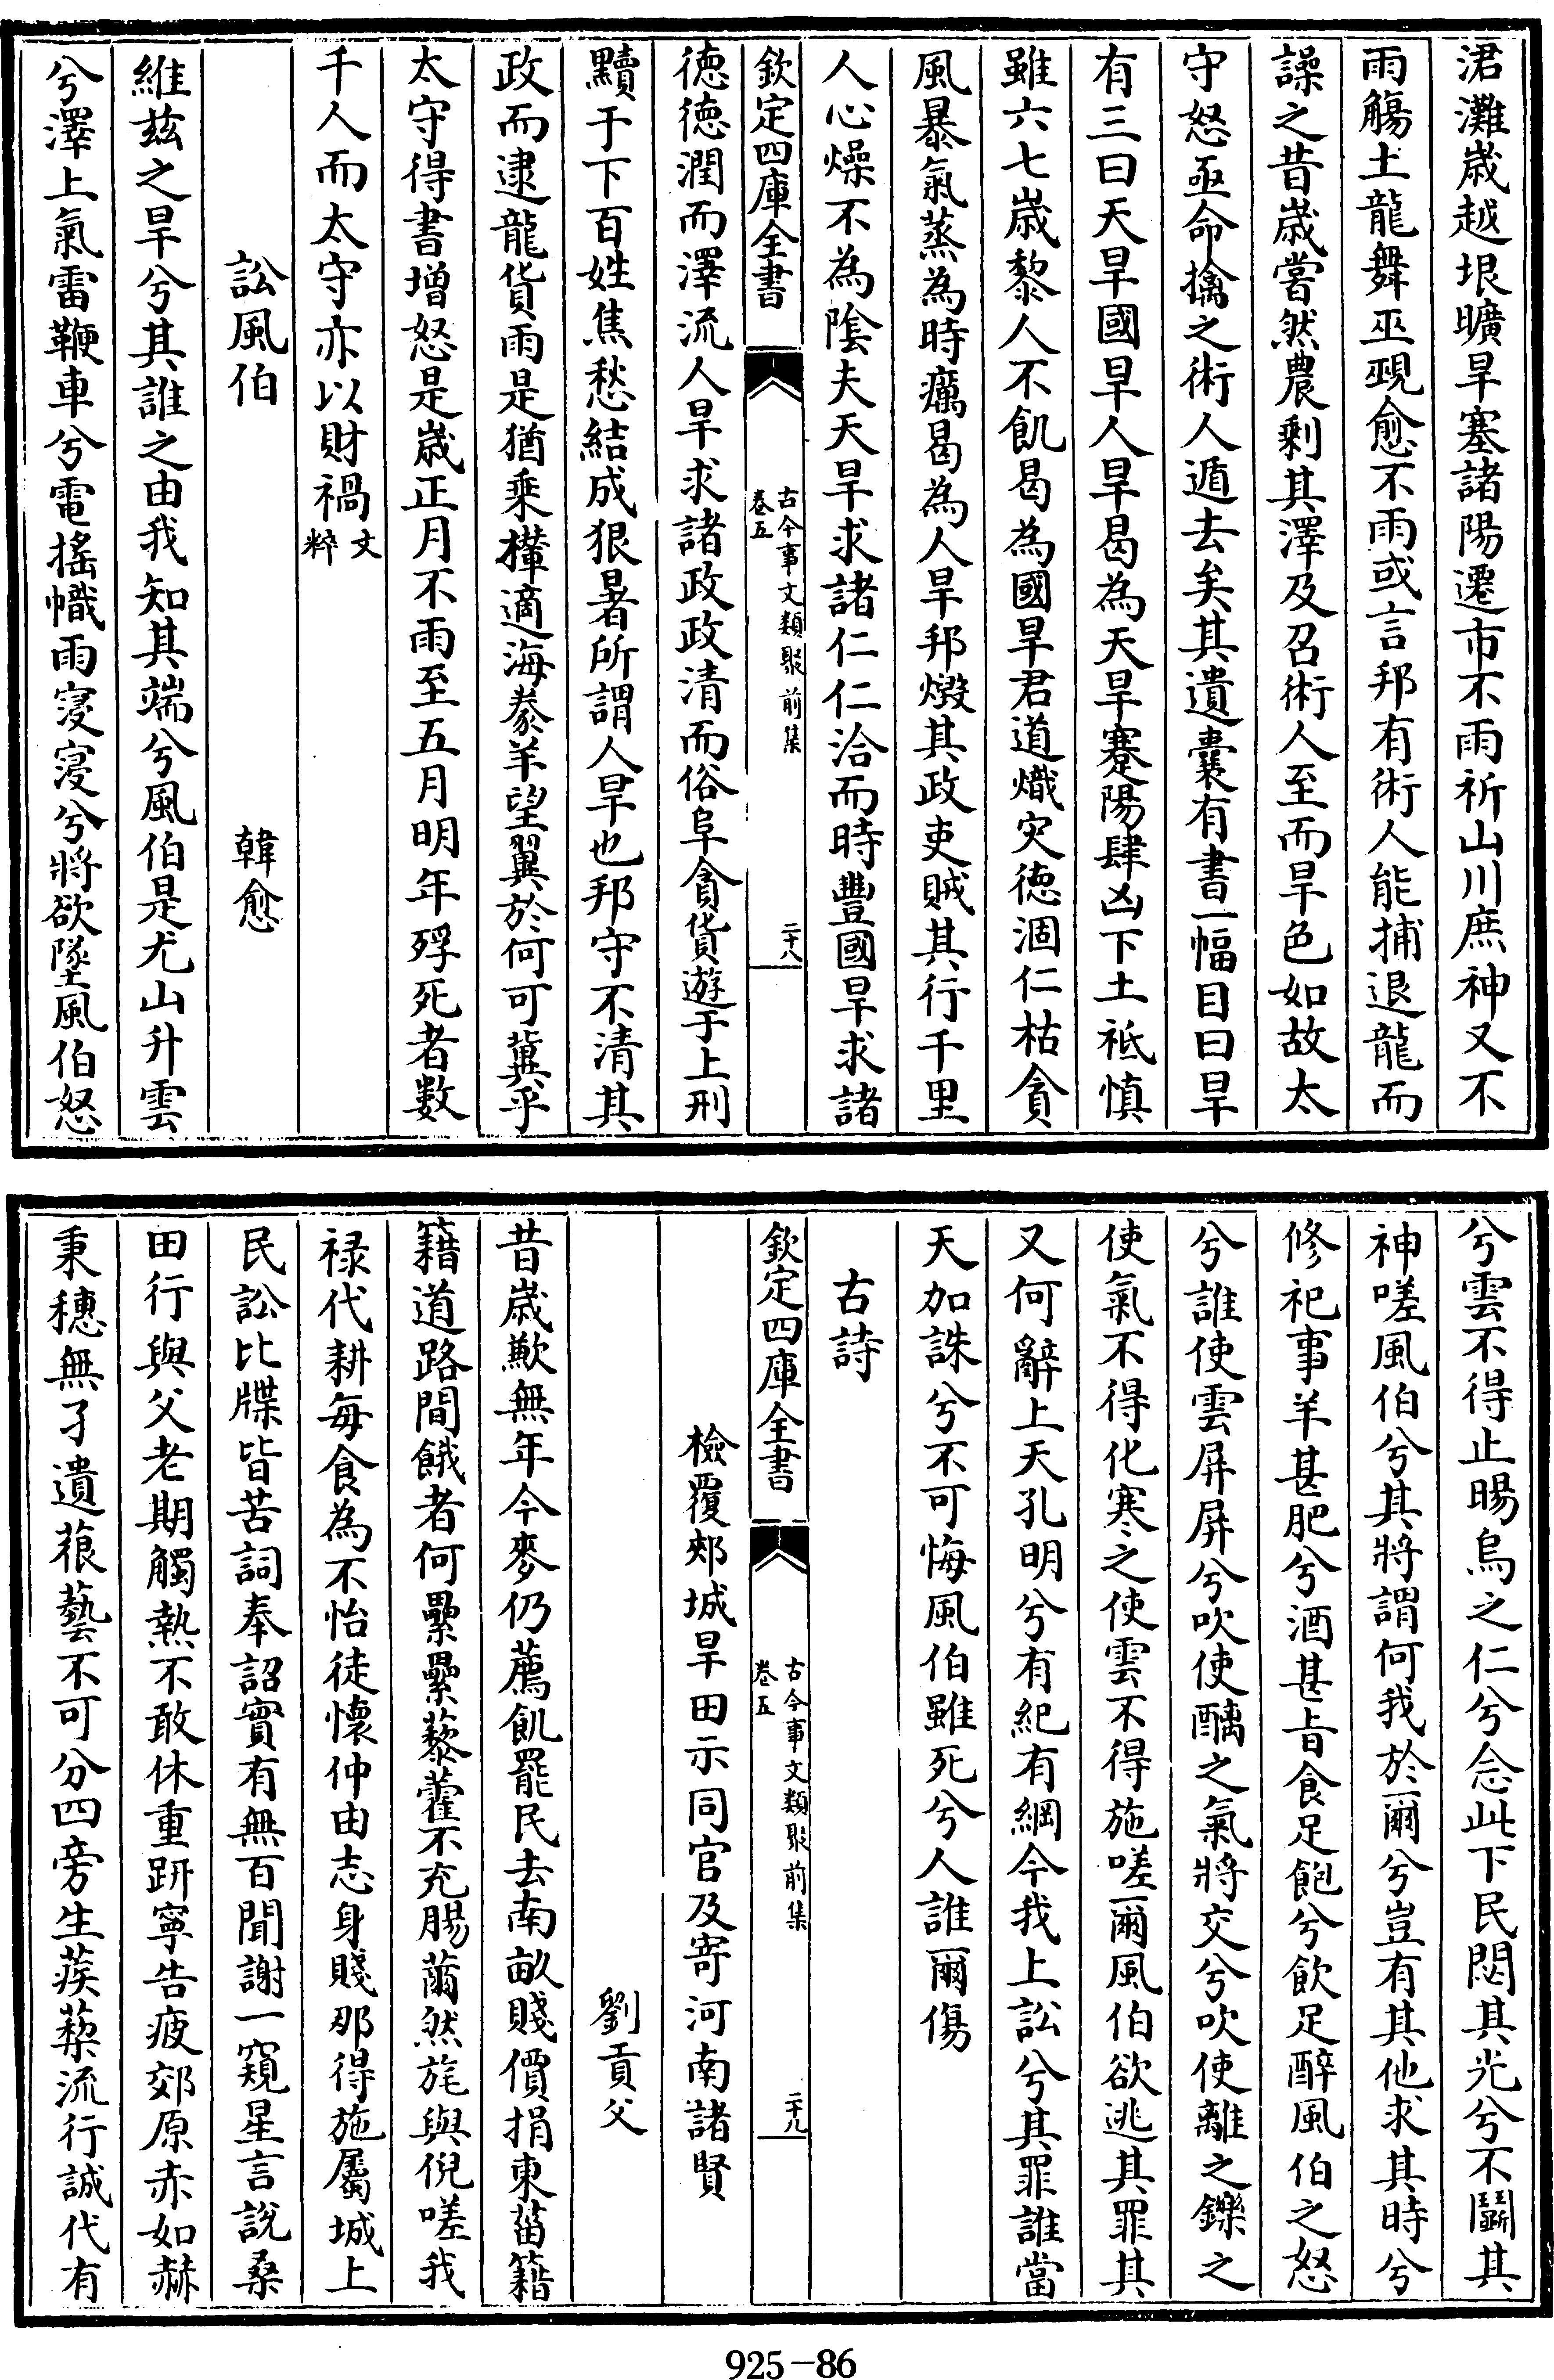 涒灘歳越垠曠旱塞諸陽遷市不雨祈山川庶神又不
雨觴土龍舞巫覡愈不雨或言邦有術人能捕退龍而
譟之昔歳嘗然農剩其澤及召術人至而旱色如故太
守怒亟命擒之術人遁去矣其遺囊有書一幅目曰旱
有三曰天旱國旱人旱曷為天旱蹇陽肆凶下土祗慎
雖六七歳黎人不飢曷為國旱君道熾灾徳涸仁枯貪
風暴氣蒸為時癘曷為人旱邦燬其政吏賊其行千里
人心燥不為隂夫天旱求諸仁仁洽而時豐國旱求諸
欽定四庫全書
古今事文類聚前集
卷五
二十八
徳徳潤而澤流人旱求諸政政清而俗阜貪貨遊于上刑
黷于下百姓焦愁結成狠暑所謂人旱也邦守不清其
政而逮龍貨雨是猶乘攆適海豢羊望翼於何可冀乎
太守得書增怒是歳正月不雨至五月明年殍死者數
千人而太守亦以財禍文
粹
訟風伯
韓愈
維兹之旱兮其誰之由我知其端兮風伯是尤山升雲
兮澤上氣雷鞭車兮電搖幟雨寖寖兮將欲墜風伯怒
兮雲不得止暘烏之仁兮念此下民閟其光兮不鬭其
神嗟風伯兮其將謂何我於爾兮豈有其他求其時兮
修祀事羊甚肥兮酒甚㫖食足飽兮飲足醉風伯之怒
兮誰使雲屏屏兮吹使醨之氣將交兮吹使離之鑠之
使氣不得化寒之使雲不得施嗟爾風伯欲逃其罪其
又何辭上天孔明兮有紀有綱今我上訟兮其罪誰當
天加誅兮不可悔風伯雖死兮人誰爾傷
古詩
欽定四庫全書
古今事文類聚前集
卷五
二十九
檢覆郟城旱田示同官及寄河南諸賢
劉貢父
昔歳歉無年今麥仍薦飢罷民去南畝賤價捐東菑籍
籍道路間餓者何纍纍藜藿不充腸薾然旄與倪嗟我
禄代耕每食為不怡徒懷仲由志身賤那得施屬城上
民訟比牒皆苦詞奉詔實有無百聞謝一窺星言說桑
田行與父老期觸熱不敢休重趼寧告疲郊原赤如赫
秉穗無孑遺蒗藝不可分四旁生蒺蔾流行誠代有